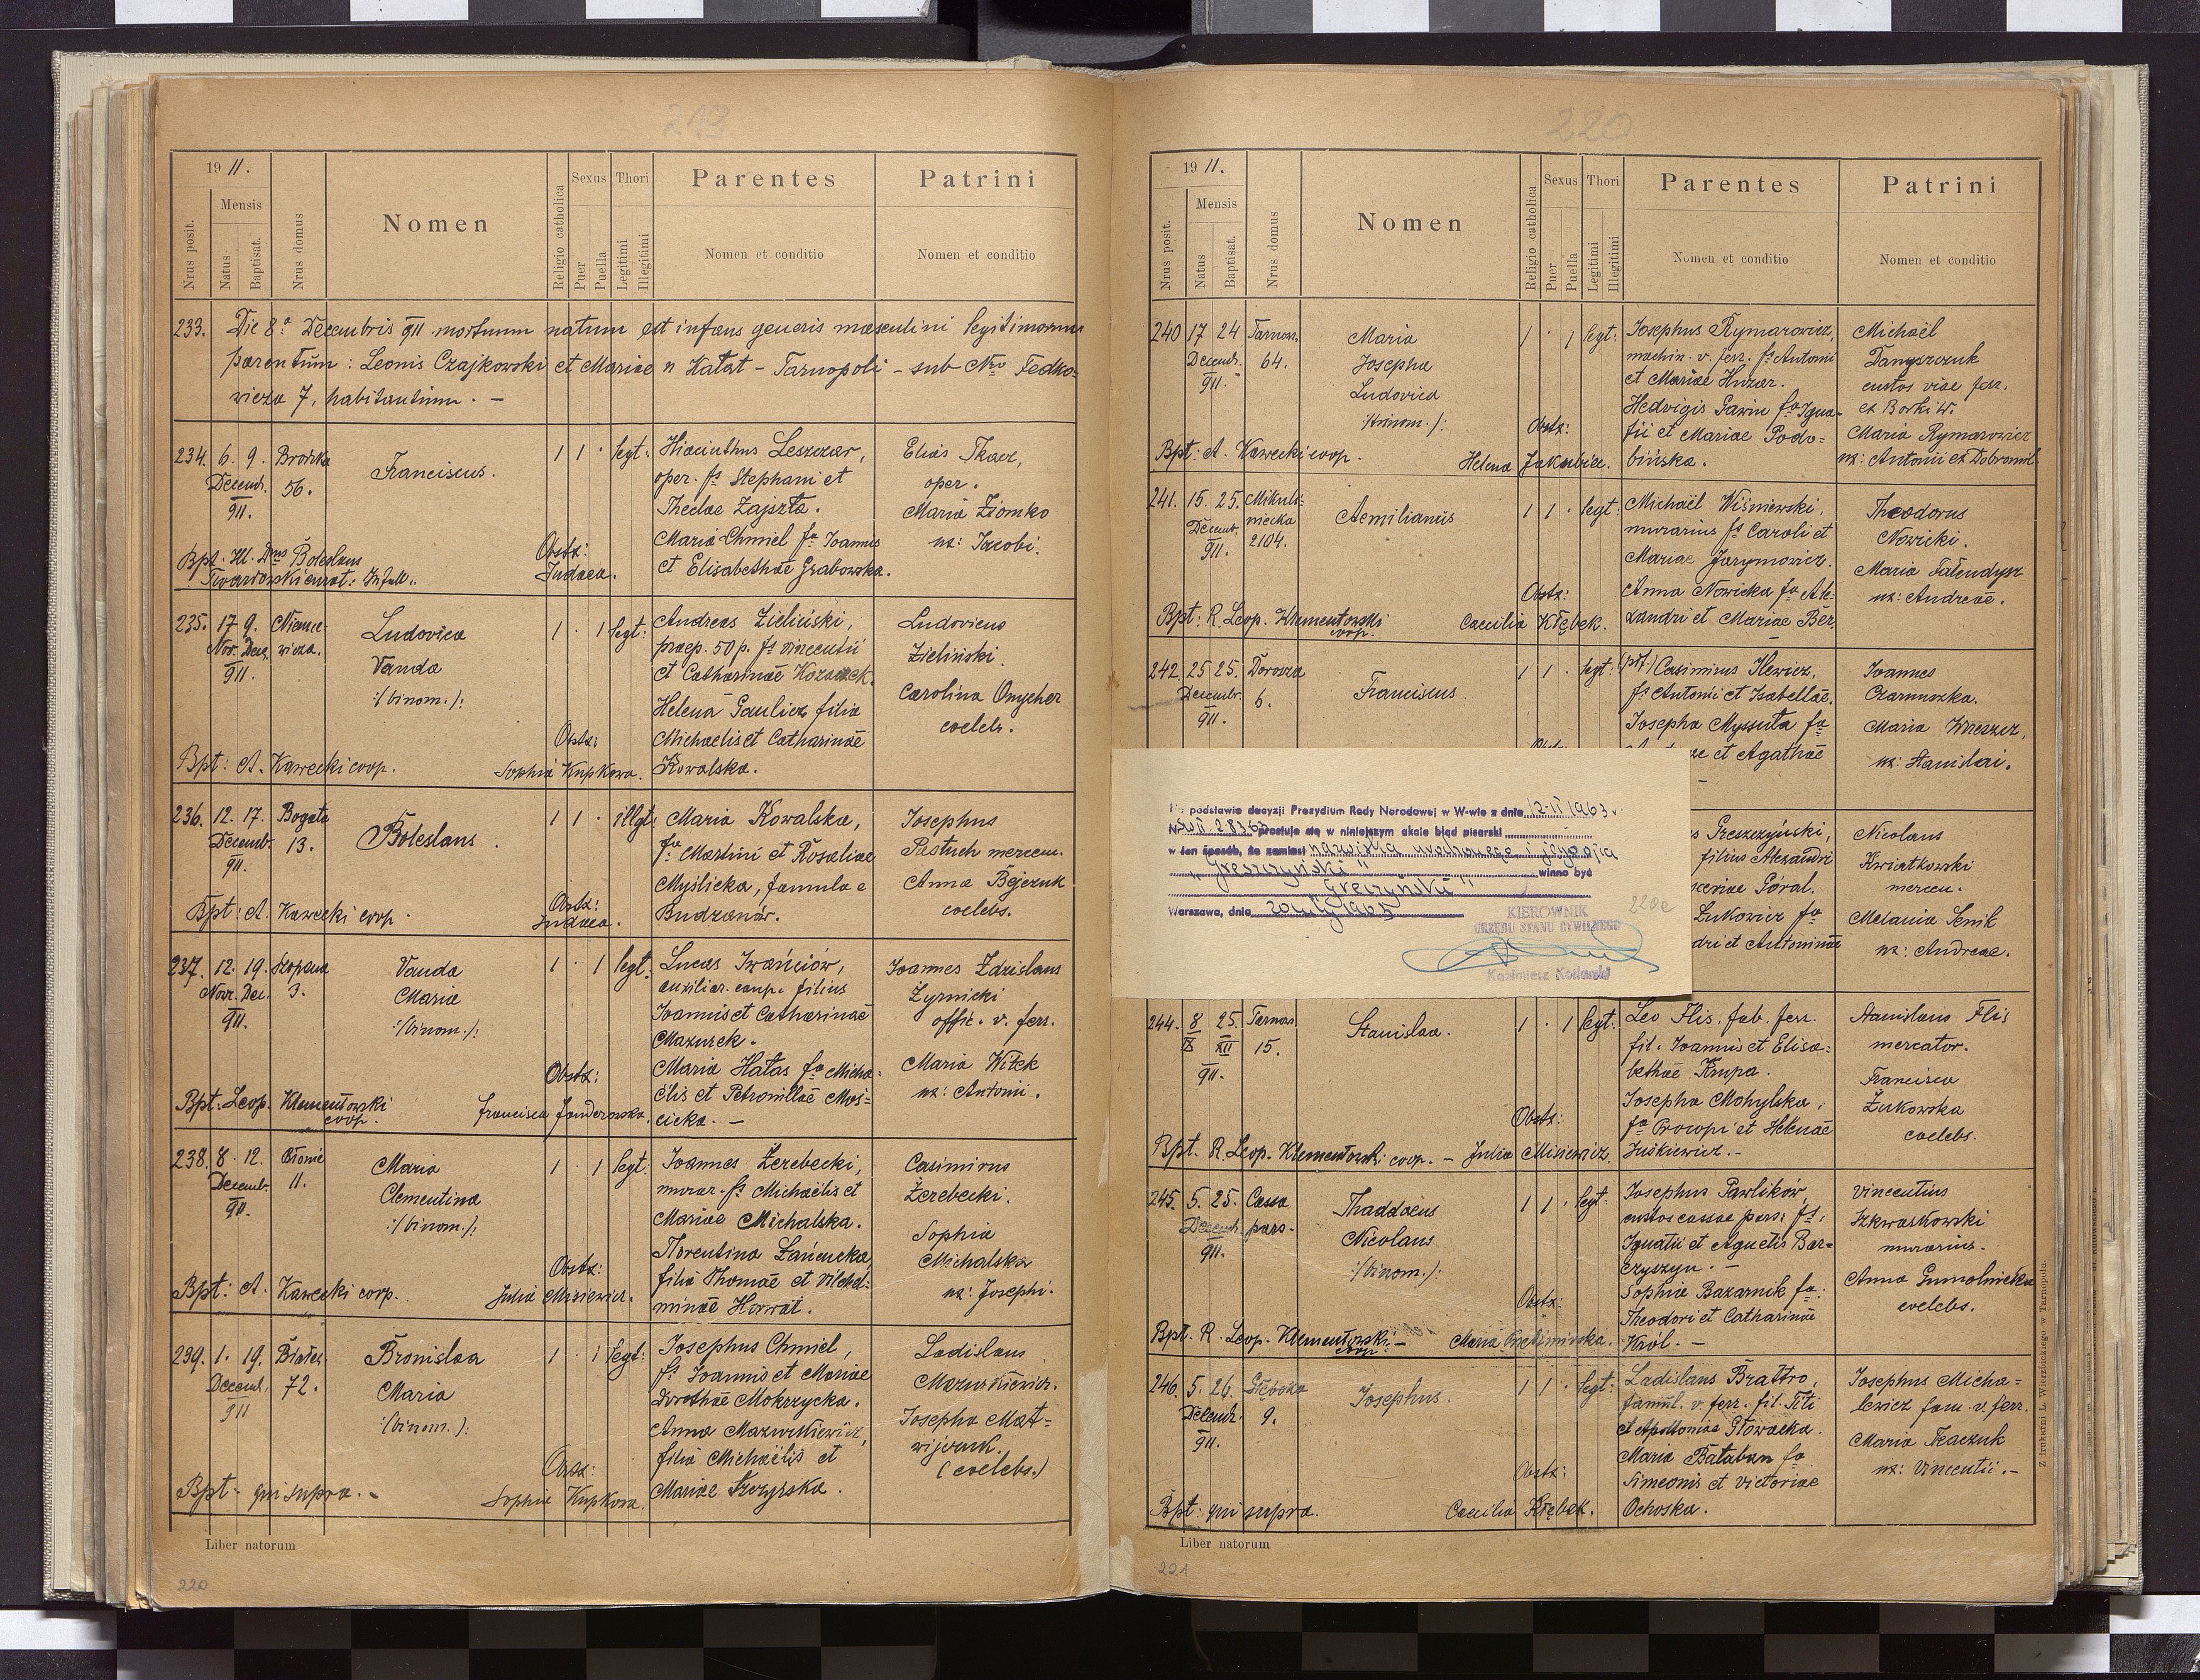 219
19 11.
Nrus posit.
Mensis
Natus
Baptisat.
Nrus domus
Nomen
Religio catholica
Sexus
Puer
Puella
Thori
Legitimi
Illegitimi
Parentes
Nomen et conditio
Patrini
Nomen et conditio
233. Die 8ª Decembris 911 mortuum natum est infans generis masculini legitimorum
parentum : Leonis Czajkowski et Mariae n Hałat - Tarnopoli - sub Nro Fedko-
wicza 7, habitantium. -
234. 6. 9. Decemb. 911.
56.
Franciscus.
1 1 · legt:
Hiacinthus Leszczar,
oper. fs Stephani et
Theclae Zajszła.
Maria Chmiel fa Joannis
et Elisabethae Grabowska.
Elias Tkacz,
oper.
Maria Ziomko
ux: Jacobi.
Bpt: Ill. Dnus Boleslaus
Twardowski curat: Infull.
Obstx:
Judaea.
235. 17 9. Nov. Dec. 911.
Niemce-
wicza.
Ludovica
Vanda
:/binom./:
1 · 1 legt:
Andreas Zieliński,
praep. 50 p. fs Vincentii
et Catharinae
Helena Gaulicz filia
Michaelis et Catharinae
Kowalska.
Ludovicus
Zieliński.
Carolina Onycher
coeleb.
Bpt: A. Kawecki coop.
Obstx:
Sophia Kupkowa.
236. 12. 17. Decemb. 911.
Bogata
13.
Boleslaus.
1 1 · illgt:
Maria Kowalska,
fa Martini et Rosaliae
Myślicka, famula e
Budzanów.
Josephus
Pastuch mercen.
Anna Bejczuk
coelebs.
Bpt: A. Kawecki coop.
Obstx:
Judaea.
237. 12. 19. Nov. Dec. 911.
Szopena
3.
Vanda
Maria
:/binom./:
1 · 1 legt:
Lucas Iwańciów,
auxiliar. caup. filius
Joannis et Catharinae
Mazurek.
Maria Hałas fa Micha-
ëlis et Petronillae Moś-
cicka. -
Joannes Zdzislaus
Żyrnicki
offic. v. ferr.
Maria Witek
ux: Antonii.
Bpt: Leop. Klementowski
coop.
Obstx:
Francisca Janderowska.
238. 8. 12. Decemb. 911.
Błonie
11.
Maria
Clementina
:/binom./:
1 · 1 legt:
Joannes Żerebecki,
murar. fs Michaëlis et
Mariae Michalska.
Florentina Łańcucka,
filia Thomae et Vilhel-
minae Horwat.
Casimirus
Żerebecki.
Sophia
Michalska
ux: Josephi.
Bpt: A. Kawecki coop.
Obstx:
Julia Misiewicz.
239. 1. 19. Decemb. 911
72.
Bronislaa
Maria
:/binom./:
1 · 1 legt:
Josephus Chmiel,
fs Joannis et Mariae
Dorothae Mokrzycka.
Anna Mazurkiewicz,
filia Michaëlis et
Mariae
Ladislaus
Mazurkiewicz.
Josepha Mat-
wijczuk.
(coelebs.)
Bpt- qui supra. -
Obstx:
Sophia Kupkowa.
Liber natorum
220
220
19 11.
Nrus posit.
Mensis
Natus
Baptisat.
Nrus domus
Nomen
Religio catholica
Sexus
Puer
Puella
Thori
Legitimi
Illegitimi
Parentes
Nomen et conditio
Patrini
Nomen et conditio
240 17 24 Decemb. 911.
64.
Maria
Josepha
Ludovica
:/trinom./:
1 · 1 legt:
Josephus Rymarowicz,
machin. v. ferr. fs Antonii
et Mariae Huzar.
Hedvigis Gawin fa Igna-
tii et Mariae Podo-
bińska.
Michaël
Danyszczuk
custos viae ferr.
ex Borki W.
Maria Rymarowicz
ux: Antonii ex Dobromil
Bpt: A. Kawecki coop.
Obstx:
Helena Jakubicz.
241. 15. 25. Decemb. 911.
Mikuli-
niecka
2104.
Aemilianus
1 1 · legt:
Michaël Wiśniewski,
murarius fs Caroli et
Mariae Jarymowicz.
Anna Nowicka fa Ale-
xandri et Mariae Ber.
Theodorus
Nowicki.
Maria Falendysz
ux: Andreae.
Bpt: R. Leop. Klementowski
coop.
Obstx:
Caecilia Kłębek.
242. 25 25. Decembr. 911.
6.
Franciscus.
1 1 · legt:
Casimirus Ilewicz,
fs Antonii et Isabellae.
Josepha Myssuta fa
et Agathae
Joannes
Czarnuszka.
Maria
ux: Stanislai.
Na podstawie decyzji Prezydium Rady Narodowej w W-wie z dnia 12-II 1963 r.
prostuje się w niniejszym akcie błąd pisarski
w ten sposób, że zamiast nazwiska urodzonego i jego ojca
"Greszczyński" winno być
"Greczyński"
Warszawa, dnia
KIEROWNIK
URZĘDU STANU CYWILNEGO
Kazimierz
Greszczyński,
filius Alexandri
Góral.
Łukowicz fa
dri et Antoninae
Nicolaus
Kwiatkowski
mercen.
Melania Senik
ux: Andreae.
244. 8 25. IX XII 911.
15.
Stanislaa.
1 · 1 legt:
Leo Flis. fab. ferr.
fil. Joannis et Elisa-
bethae Krupa.
Josepha Mohylska,
fa Procopi et Helenae
Juśkiewicz. -
Stanislaus Flis
mercator.
Francisca
Żukowska
coelebs.
Bpt. R. Leop. Klementowski coop. -
Obstx:
Julia Misiewicz.
245. 5. 25. Decemb. 911.
Cassa
pars.
Thaddaeus
Nicolaus
:/binom./:
1 1 · legt:
Josephus Pawlików,
custos cassae pars: fs.
Ignatii et Agnetis Bar-
czyszyn. -
Sophia Bazarnik fa:
Theodori et Catharinae
Król. -
Vincentius
Szkwarkowski
murarius.
Anna Gumolnicka
coelebs.
Bpt. R. Leop. Klementowski -
coop.
Obstx:
Maria
246. 5. 26. Decemb. 911.
9.
Josephus.
1 1 · legt:
Ladislaus Brattro,
famul. v. ferr. fil. Titi
et Apolloniae Głowacka.
Maria Bałaban fa
Simeonis et Victoriae
Ochoska.
Josephus Micha-
lewicz fam. v. ferr.
Maria Tkaczuk
ux: Vincentii. -
Bpt: qui supra.
Obstx:
Caecilia Kłębek.
Liber natorum
221
Z drukarni L. Wierzbickiego w Tarnopolu.